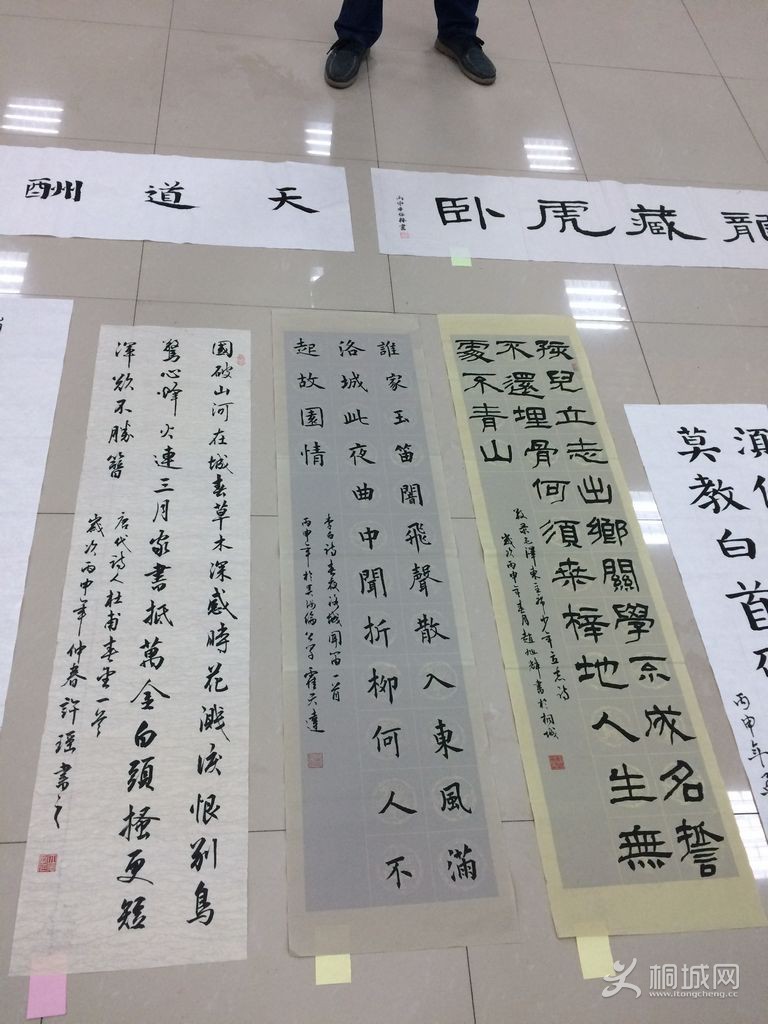 天道酬
龍藏虎卧
國破山河在城春草木深感時花濺淚恨别鳥
驚心烽火連三月家書抵萬金白頭搔更短
渾欲不勝簪
唐代詩人杜甫春望一首
歲次丙申年仲春許瑶書之
誰家玉笛闇飛聲散入東風滿
洛城此夜曲中聞折柳何人不
起故園情
李白詩春夜洛城聞笛一首
丙申年於吴汝綸公學霍天達
孩兒立志出鄉關學不成名誓
不還埋骨何須桑梓地人生無
處不青山
敬录毛澤東主席少年立志詩
歲次丙申年春月趙書於桐城
須
莫教白首
丙申年
桐城网
www.itongcheng.cc